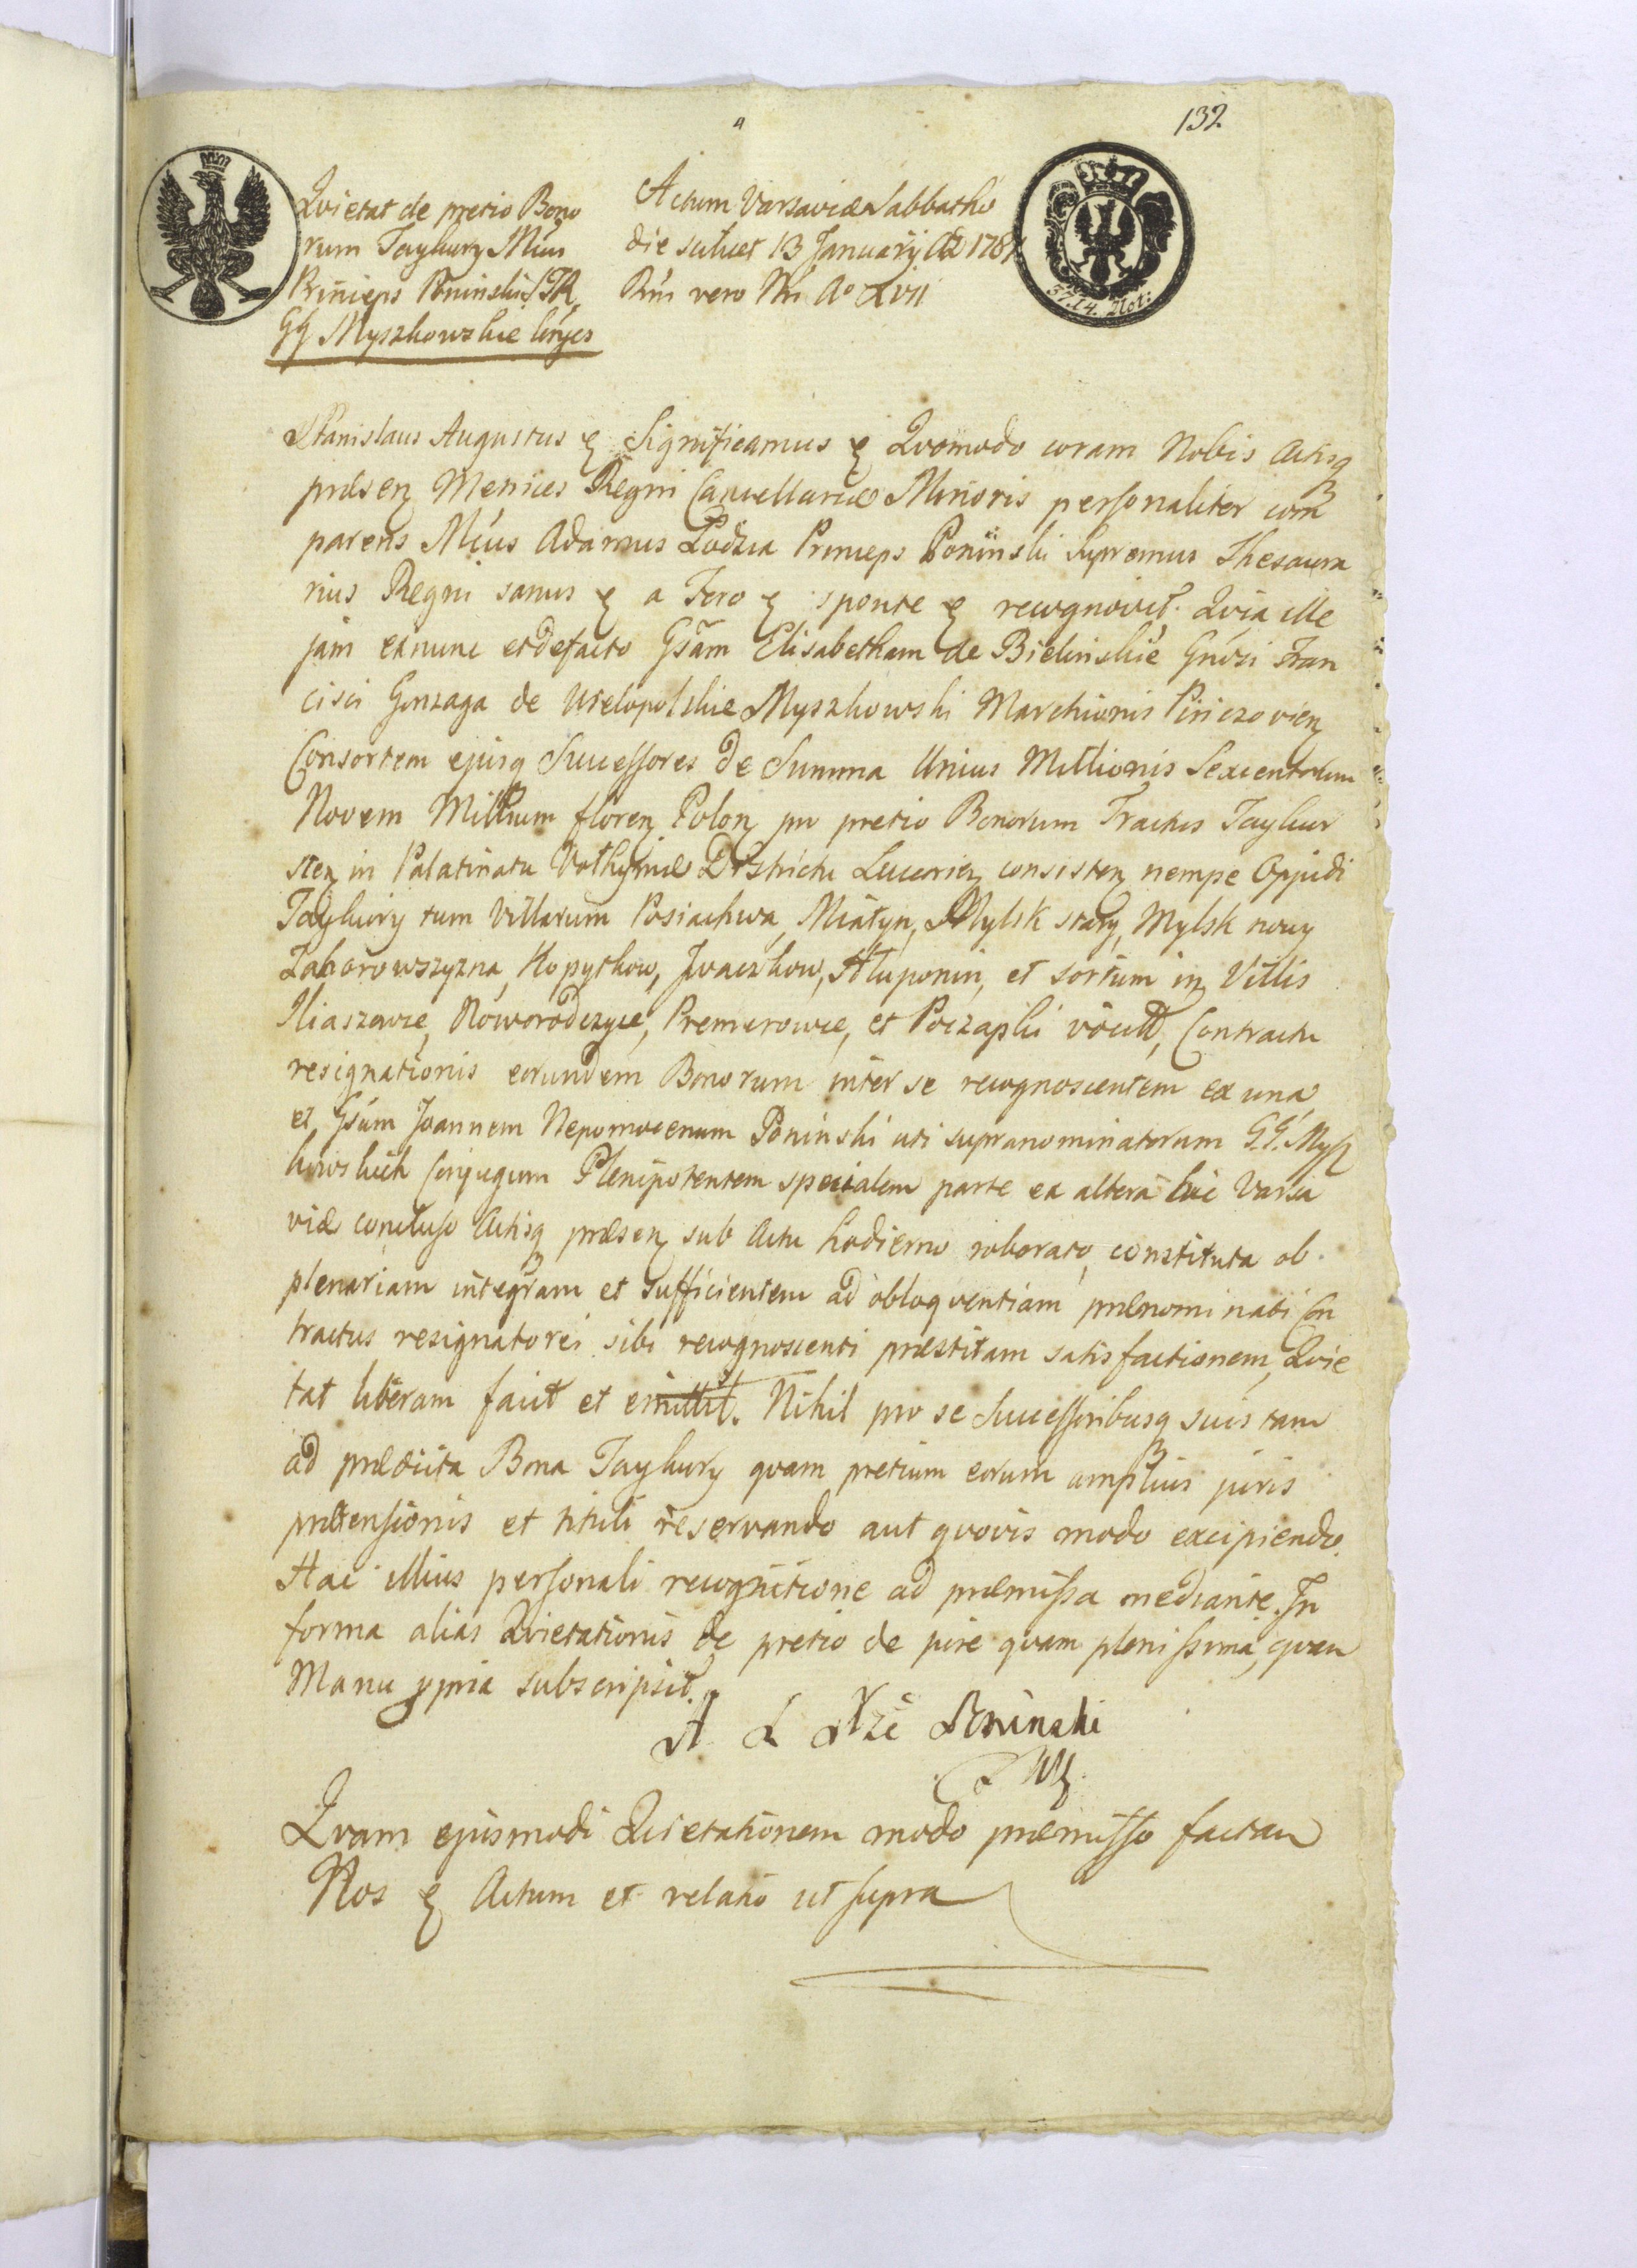 132
Qvietat de pretio Bono
rum Taykury Mĩus
Princeps Poninski STR
GG Myszkowskie Cõnjes
Actum Varsaviæ Sabbatho
die scilicet 13 January AD 1781
Rñi vero Nri A° XVII
37.14. Zlot:
Stanislaus Augustus ę Significamus ę Qvomodo coram Nobis Actisq
præsen Metrices Regni Cancellariæ Minoris personaliter com
parens Mĩus Adamus Łodzia Princeps Poninski Supremus Thesaura
rius Regni sanus ę a Foro ę sponte ę recognovit. Qvia ille
jam exnunc et defacto Gsãm Elisabetham de Bielinskie Gnõsi Fran
cisci Gonzaga de Wielopolskie Myszkowski Marchionis Pinczovien
Consortem ejusq Successores de Summa Unius Millionis Sexcentorum
Novem Millium floren Polon pro pretio Bonorum Tractus Taykur
sien in Palatinatu Volhyniæ Districtu Luceorien consisten nempe Oppidi
Taykury tum Villarum Posiachwa, Miatyn, Mylsk stary, Mylsk nowy
Zaborowszyzna, Kopytkow, Iwaczkow, Hluponin, et sortium in Villis
Iliaszowie, Noworodczyce, Premirowie, et Poczapki vocat, Contractu
resignationis eorundem Bonorum inter se recognoscentem ex una
et Gsũm Joannem Nepomucenum Poninski uti supranominatorum G.G. Mysz
kowskich Conjugum Plenipotentem specialem parte ex altera hic Varsa
viæ concluso Actisq præsen sub Actu hodierno roborato, constituta ob
plenariam integram et sufficientem ad obloqventiam prænominati Con
tractus resignatorei sibi recognoscenti præstitam satisfactionem, Qvie
tat liberam facit et emittit. Nihil pro se Successoribusq suis tam
ad prædicta Bona Taykury qvam pretium eorum amplius juris
prætensionis et tituli reservando aut qvovis modo excipiendo.
Hac illius personali recognitione ad præmissa mediante. In
forma alias Qvietationis de pretio de jure qvam plenissima, qvam
Manu ppria subscripsit.
A Ł Xże Poninski
Qvam ejusmodi Qvietationem modo præmisso factam
Nos ę Actum et relatio ut supra